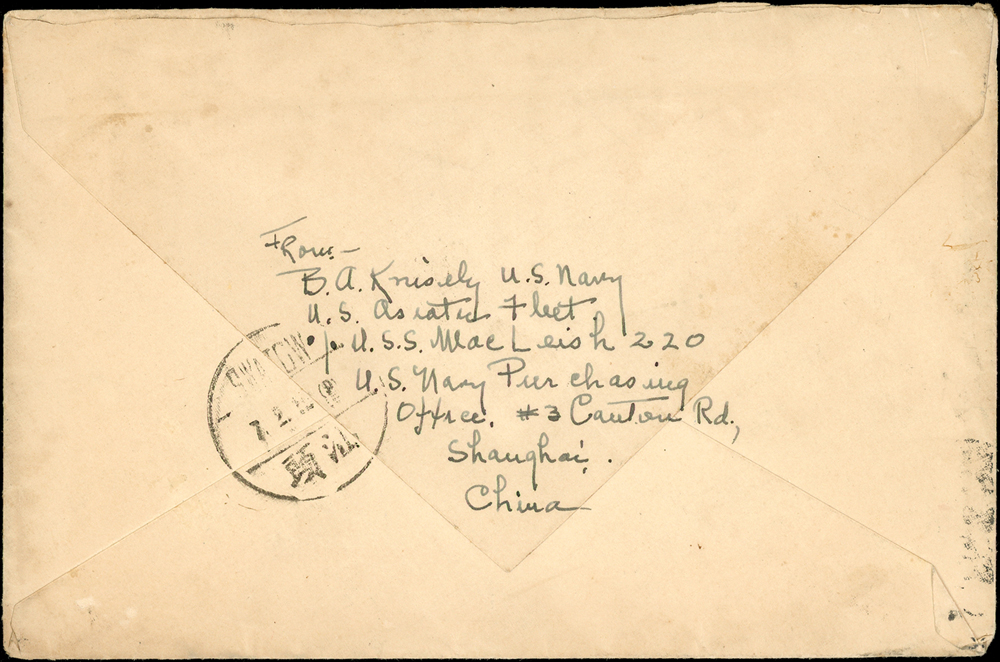 From:-
B. A. Knisely U.S. Navy
U.S. Asiatic Fleet
℅ U.S.S. MacLeish 220
U.S. Navy Purchasing
Office. #3 Canton Rd.,
Shanghai.
China
SWATOW
汕頭